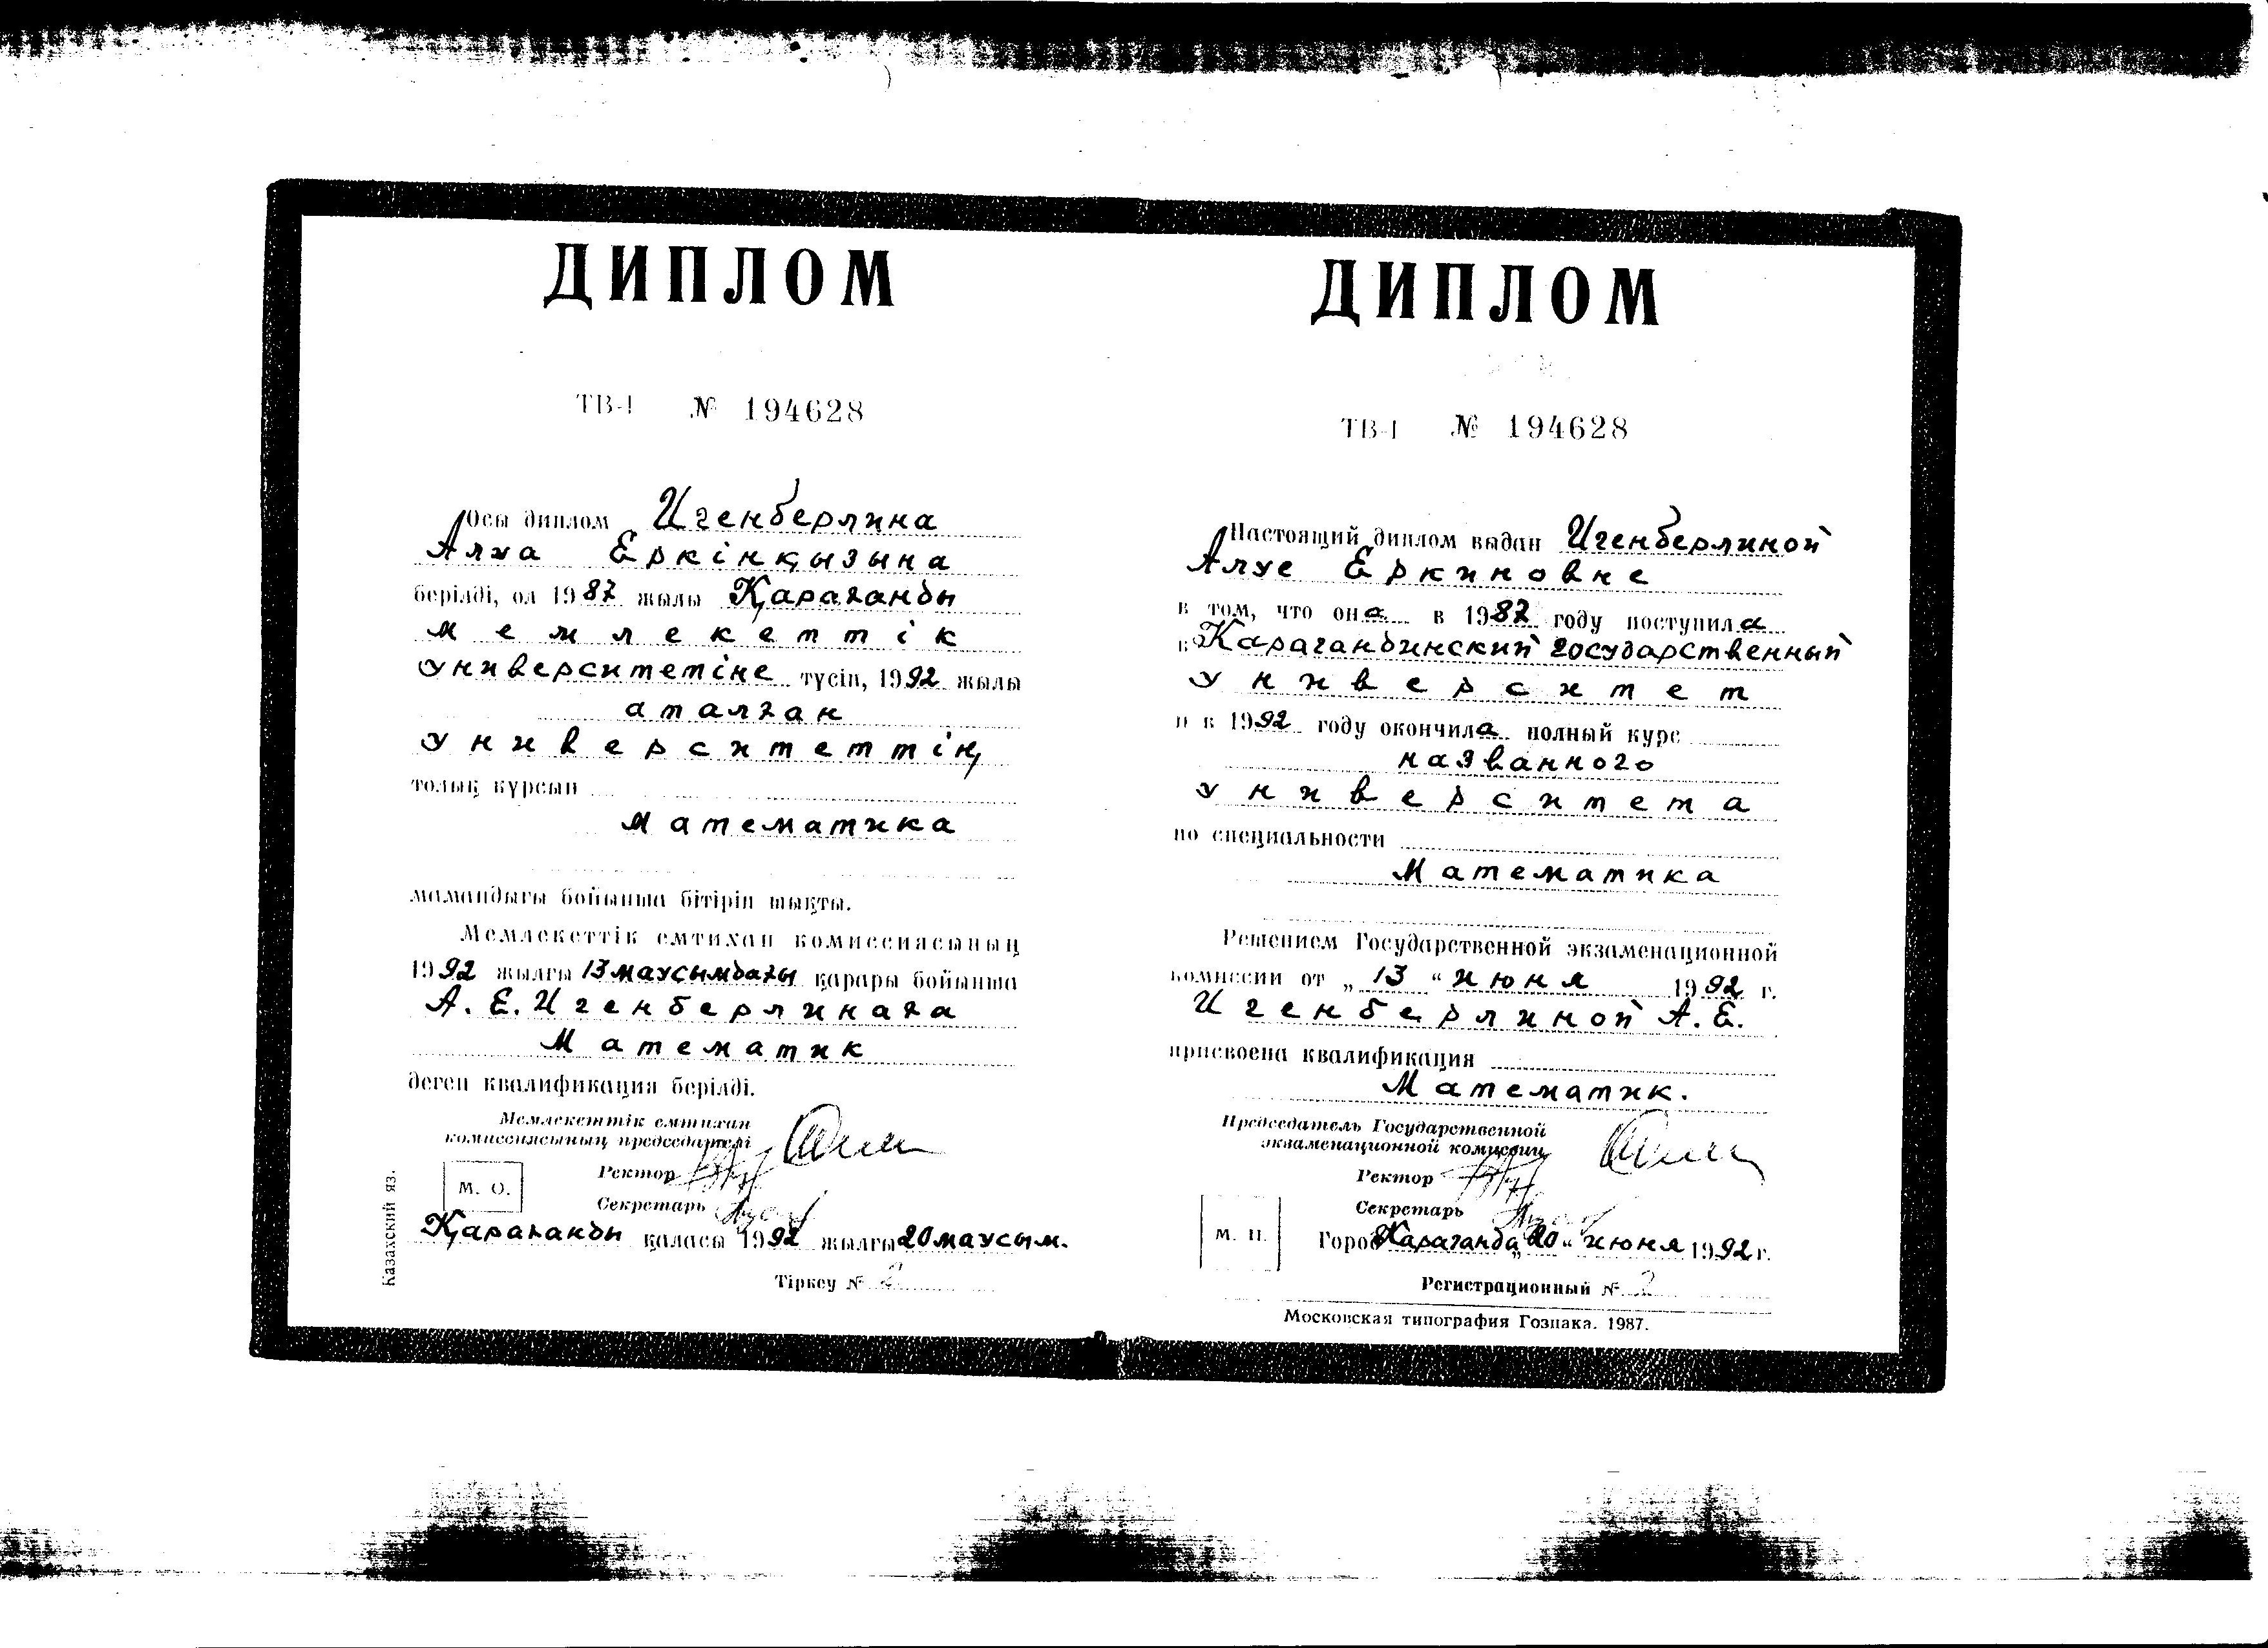 ДИПЛОМ
ТВ-I № 194628
Осы диплом Игенберлина
Алуа Еркінқызына
берілді, ол 1987 жылы Қарағанды
мемлекеттік
университетіне түсіп, 1992 жылы
аталған
университеттің
толық курсын
Математика
мамандығы бойынша бітіріп шықты.
Мемлекеттік емтихан комиссиясының
1992 жылғы 13 маусымдағы қарары бойынша
А. Е. Игенберлинаға
Математик
деген квалификация берілді.
Мемлекеттік емтихан
комиссиясының председателі
Ректор
Секретарь
М. О.
Қарағанды қаласы 1992 жылғы 20 маусым.
Тіркеу № 2
Казахский яз.
ДИПЛОМ
ТВ-I № 194628
Настоящий диплом выдан Игенберлиной
Алуе Еркиновне
в том, что она в 1987 году поступила
в Карагандинский государственный
университет
и в 1992 году окончила полный курс
названного
университета
по специальности
Математика
Решением Государственной экзаменационной
комиссии от „13“ июня 1992 г.
Игенберлиной А. Е.
присвоена квалификация
Математик.
Председатель Государственной
экзаменационной комиссии
Ректор
Секретарь
М. П.
Город Караганда „20“ июня 1992 г.
Регистрационный № 2
Московская типография Гознака. 1987.